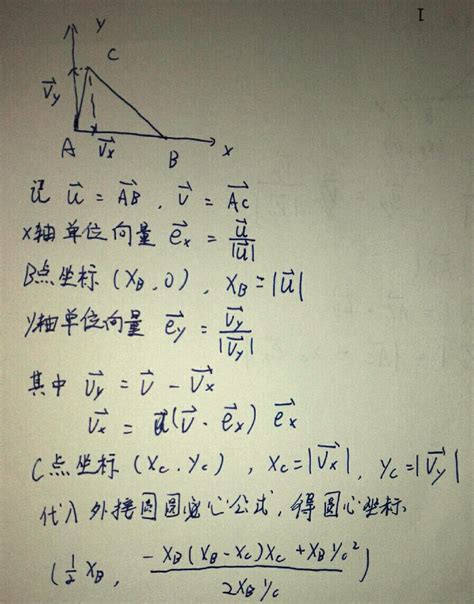 I
y
C
V⃗y
A V⃗x B x
记 u⃗ = AB⃗ , v⃗ = AC⃗
x轴单位向量 e⃗x = u⃗/|u⃗|
B点坐标 (XB, 0) , XB = |u⃗|
y轴单位向量 e⃗y = V⃗y/|V⃗y|
其中 V⃗y = V⃗ - V⃗x
V⃗x = (V⃗ · e⃗x) e⃗x
C点坐标 (Xc, Yc) , Xc = |V⃗x| , Yc = |V⃗y|
代入外接圆圆心公式, 得圆心坐标
(½ XB, (-XB(XB-Xc)Xc + XB Yc²)/(2XB Yc))